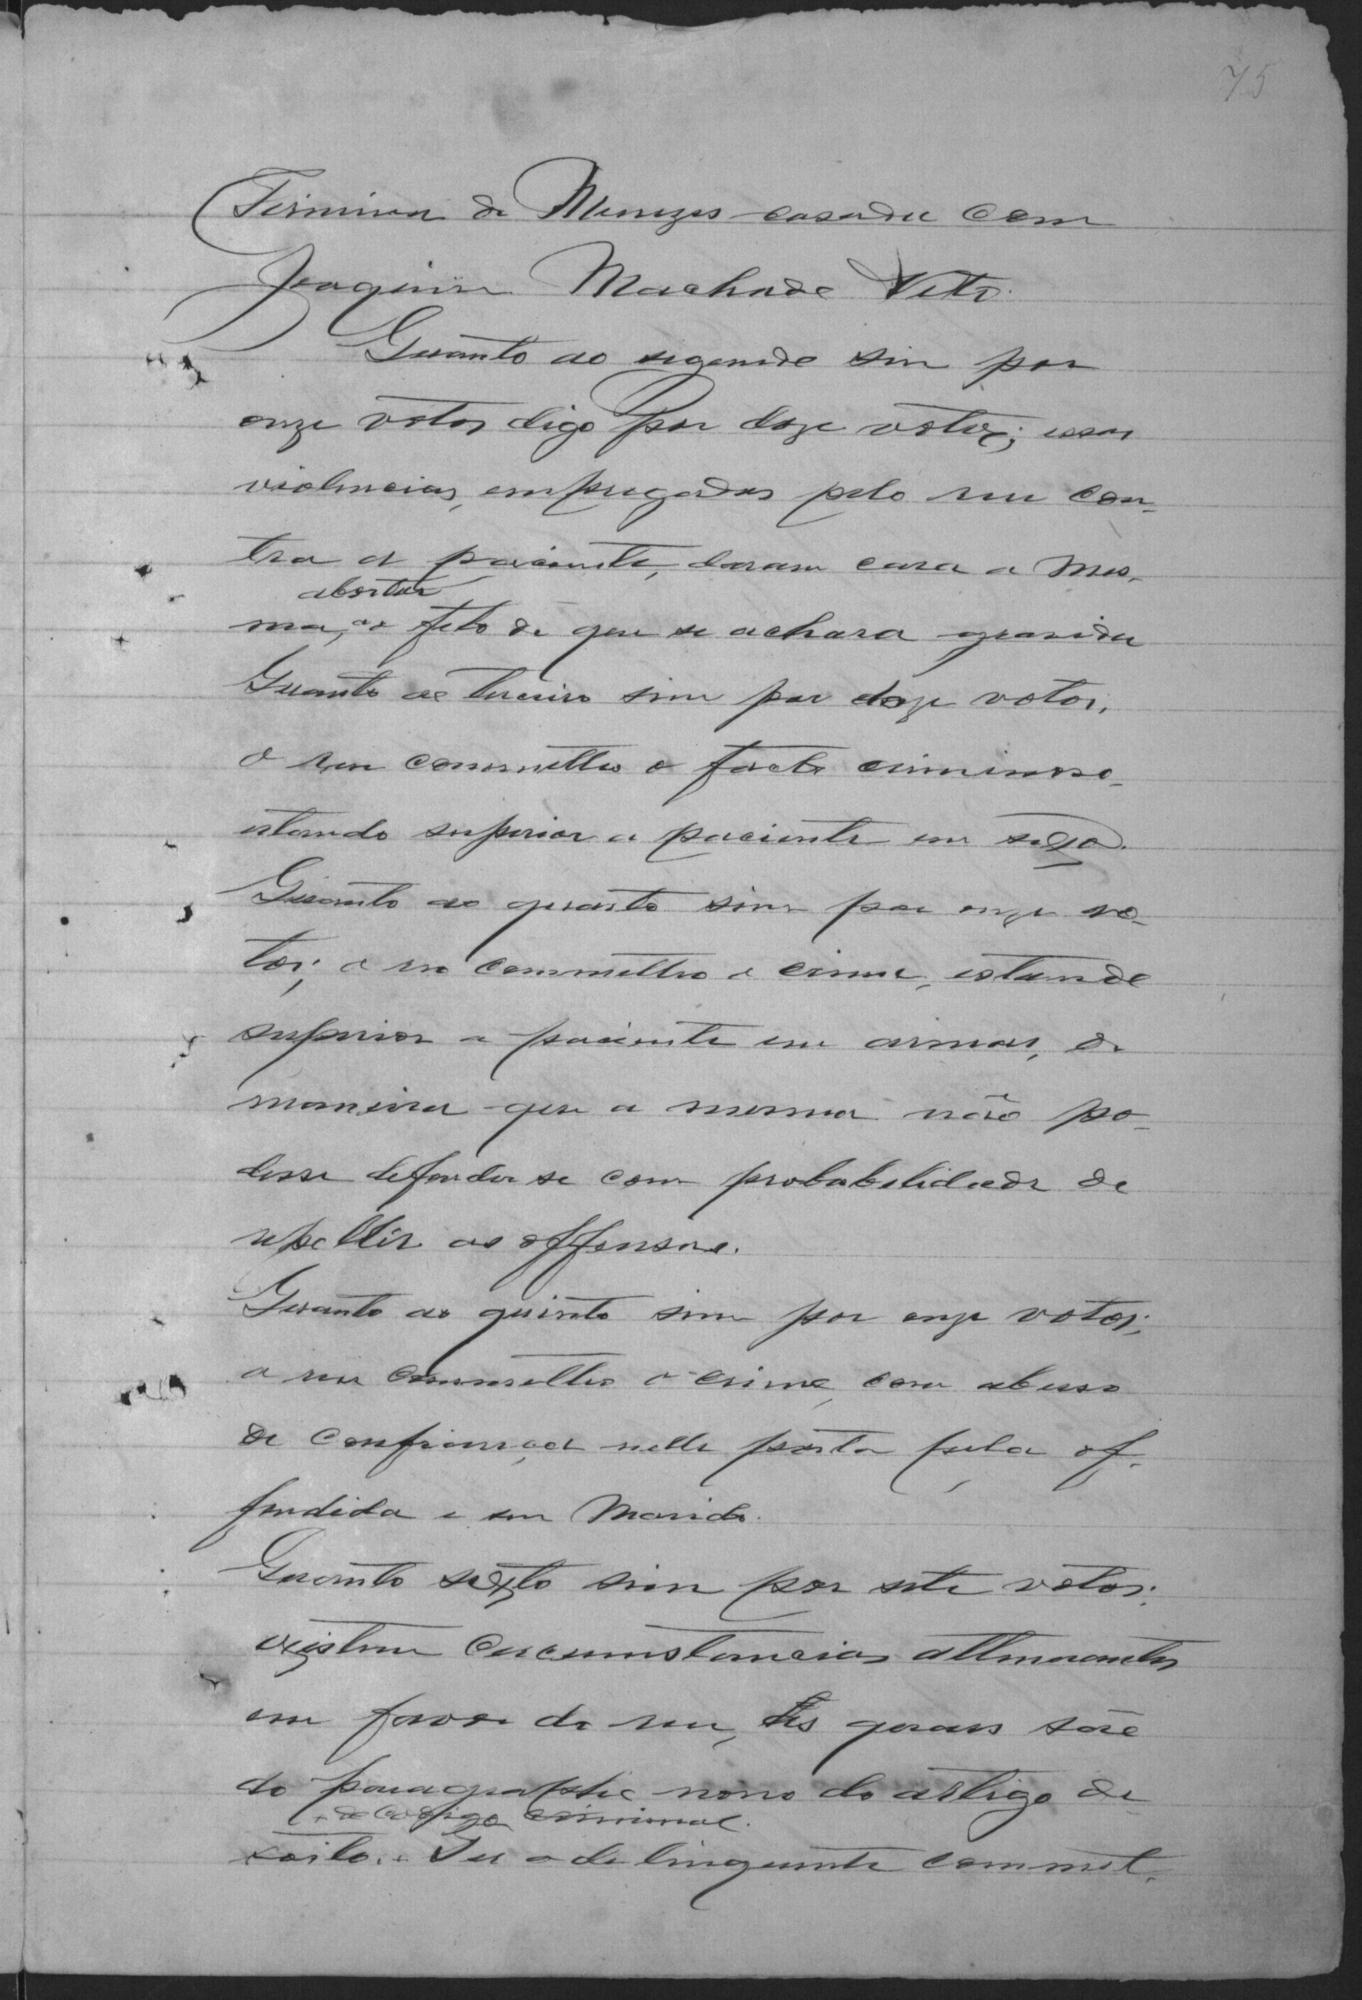 75
Firmina de Menezes casada com
Joaquim Machado Neto.
Quanto ao segundo sim por
onze votos digo por doze votos; essas
violencias, empregadas pelo reu con-
tra a paciente, daram cara a mes-
abortar
ma, o feto de que se achara gravida
Quanto ao terceiro sim por doze votos,
o reu commetteo o facto criminoso,
estando superior a paciente em sexo.
Quanto ao quarto sim por onze vo-
tos; o reo commetteo o crime, estando
superior a paciente em armas, de
maneira que a mesma não po-
desse defender se com probabelidade de
repellir as offensas.
Quanto ao quinto sim por onze votos;
o reu commetteo o crime, com abuso
de confiança nelle posta pela of-
fendida e seu Marido.
Quanto sexto sim por sete votos;
existem circumstancias attenuantes
em favor do reu, as quaes são
do paragrapho nono do artigo de
do codigo criminal.
soito. Ser o delinquente commet-